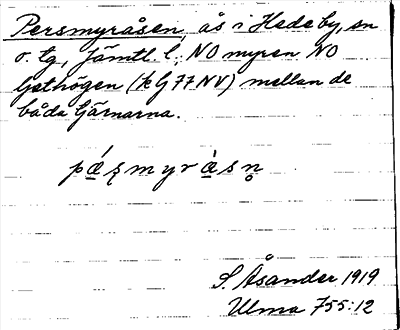 Persmyråsen ås i Hedeby, sn
o. tg, Jämtl. l.; NO myren NO
Gethögen (k G 77 NV) mellan de
båda tjärnarna.
S. Åsander 1919
Ulma 755:12